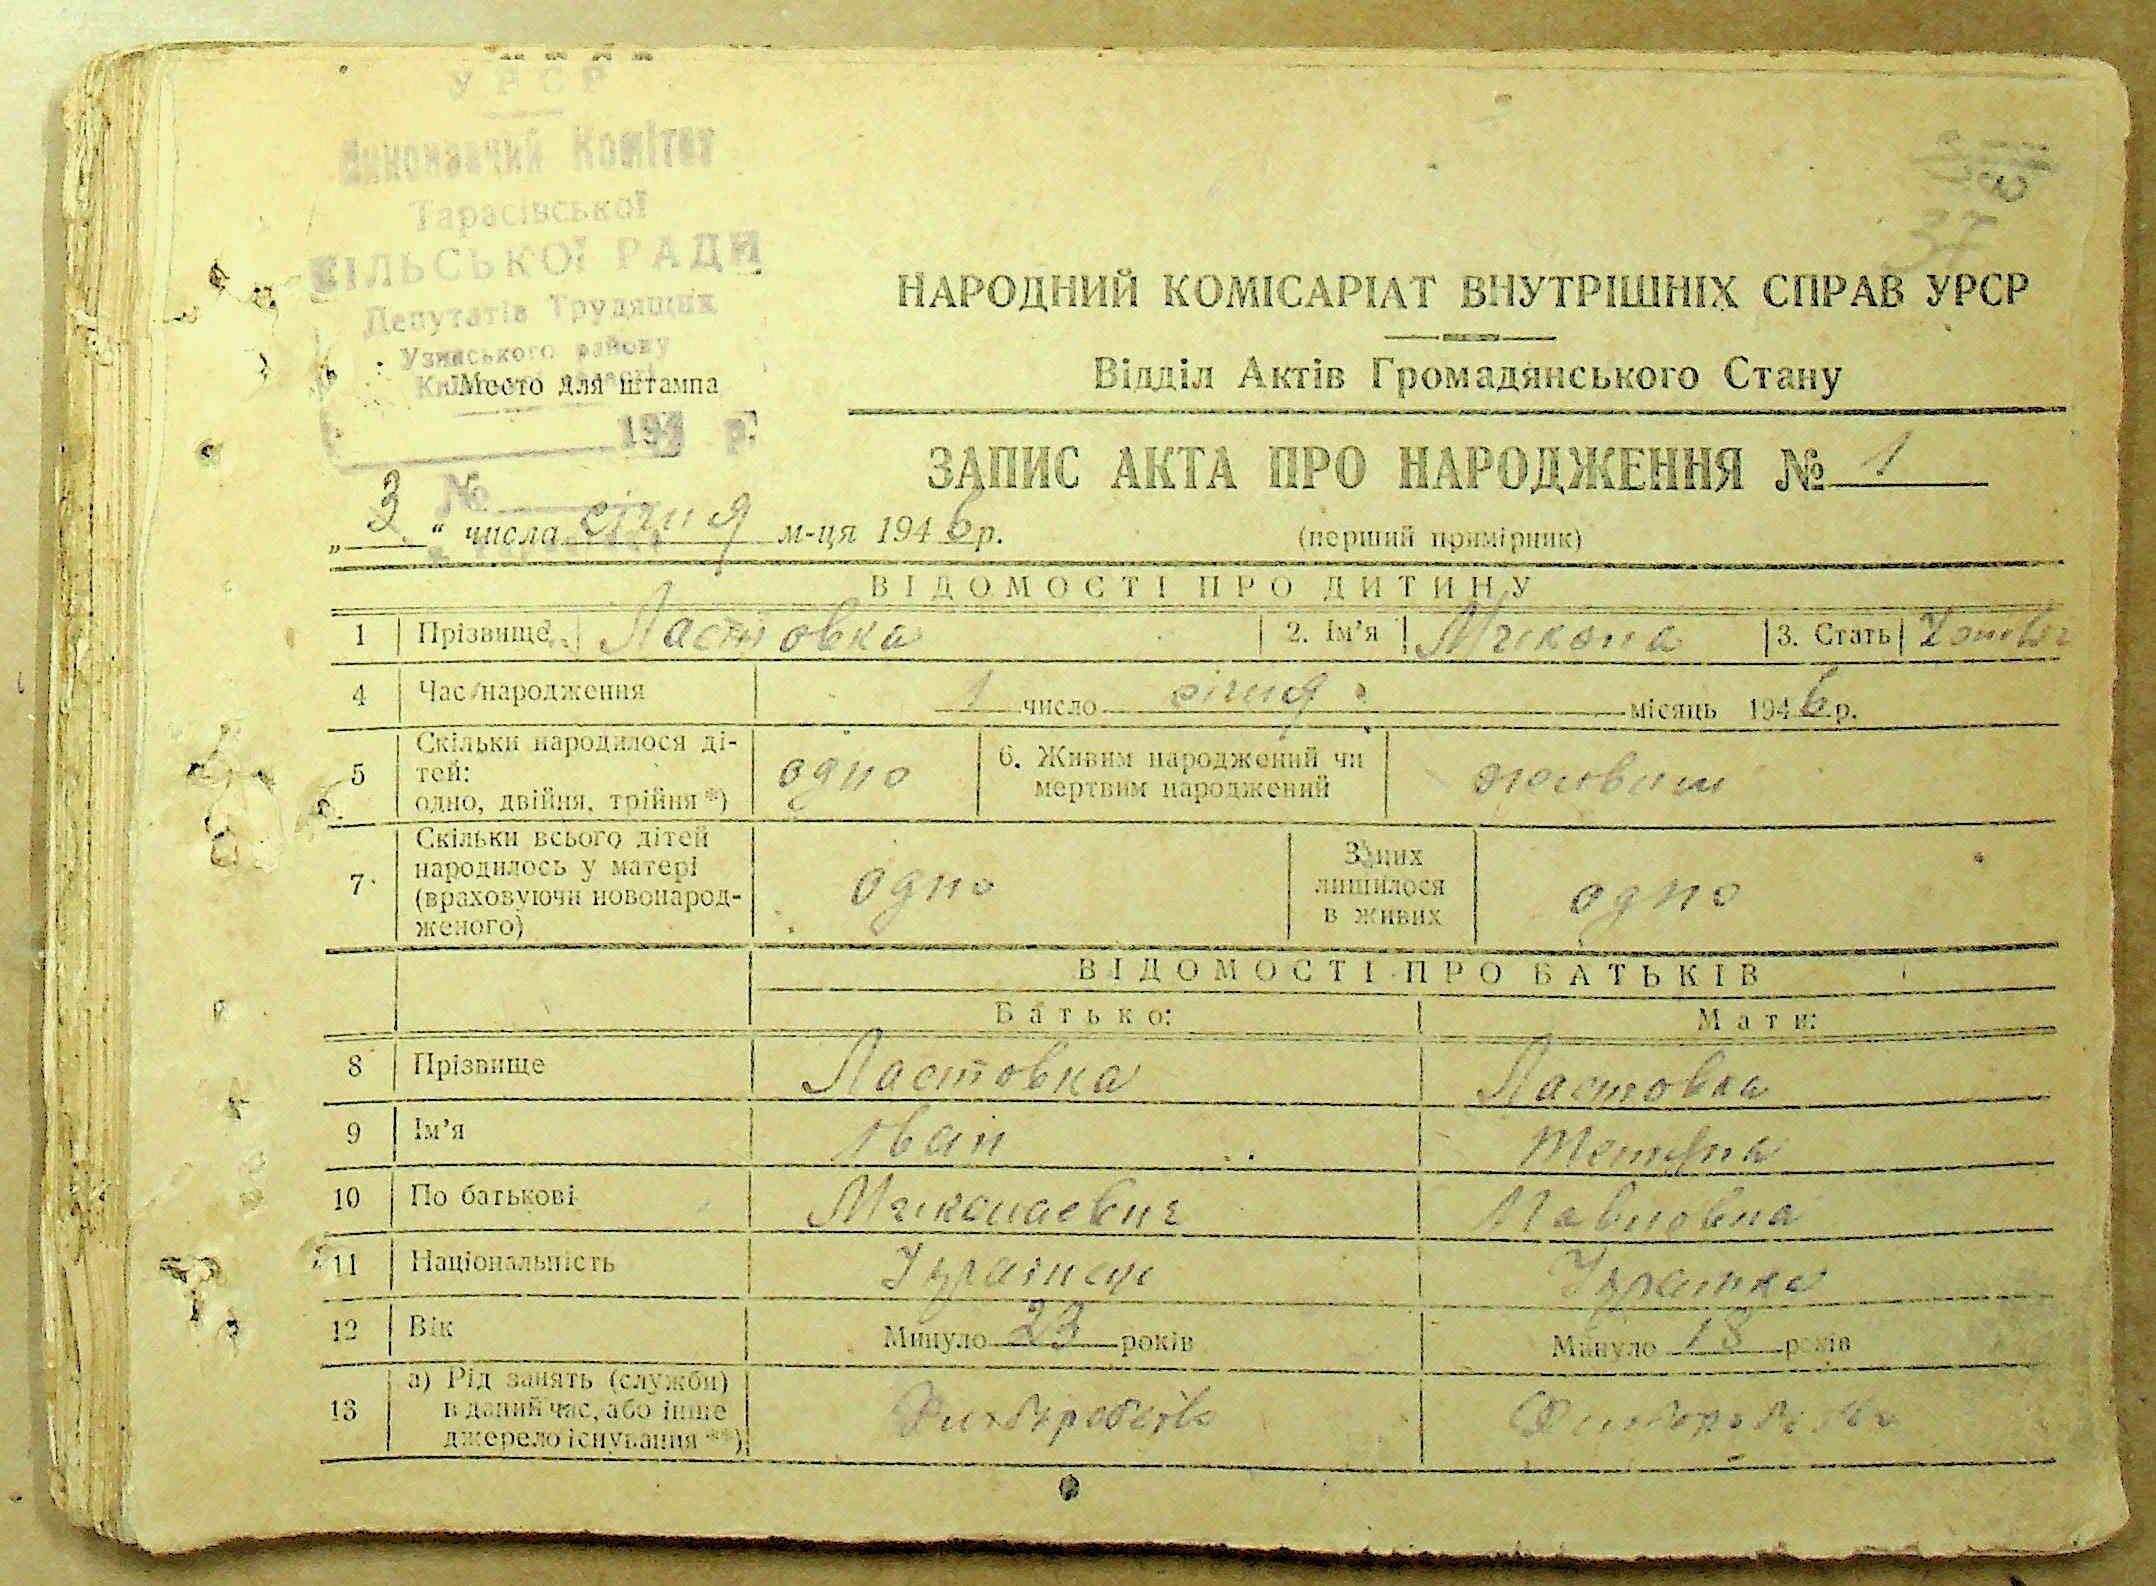 УРСР
Виконавчий Комітет
Тарасівської
СІЛЬСЬКОЇ РАДИ
Депутатів Трудящих
Узинського району
Место для штампа
194 р.
№
37
НАРОДНИЙ КОМІСАРІАТ ВНУТРІШНІХ СПРАВ УРСР
Відділ Актів Громадянського Стану
ЗАПИС АКТА ПРО НАРОДЖЕННЯ № 1
„ 3 “ числа січня м-ця 1946 р. (перший примірник)
ВІДОМОСТІ ПРО ДИТИНУ
1 Прізвище Ластовка 2. Ім’я Микола 3. Стать
4 Час народження 1 число січня місяць 1946 р.
5 Скільки народилося дітей: одно, двійня, трійня *) одно 6. Живим народжений чи мертвим народжений живим
7 Скільки всього дітей народилось у матері (враховуючи новонародженого) одно З них лишилося в живих одно
ВІДОМОСТІ ПРО БАТЬКІВ
Батько: Мати:
8 Прізвище Ластовка Ластовка
9 Ім’я Іван Тетяна
10 По батькові Миколаевич Павловна
11 Національність Українець Українка
12 Вік Минуло 23 років Минуло 18 років
13 а) Рід занять (служби) в даний час, або інше джерело існування **)